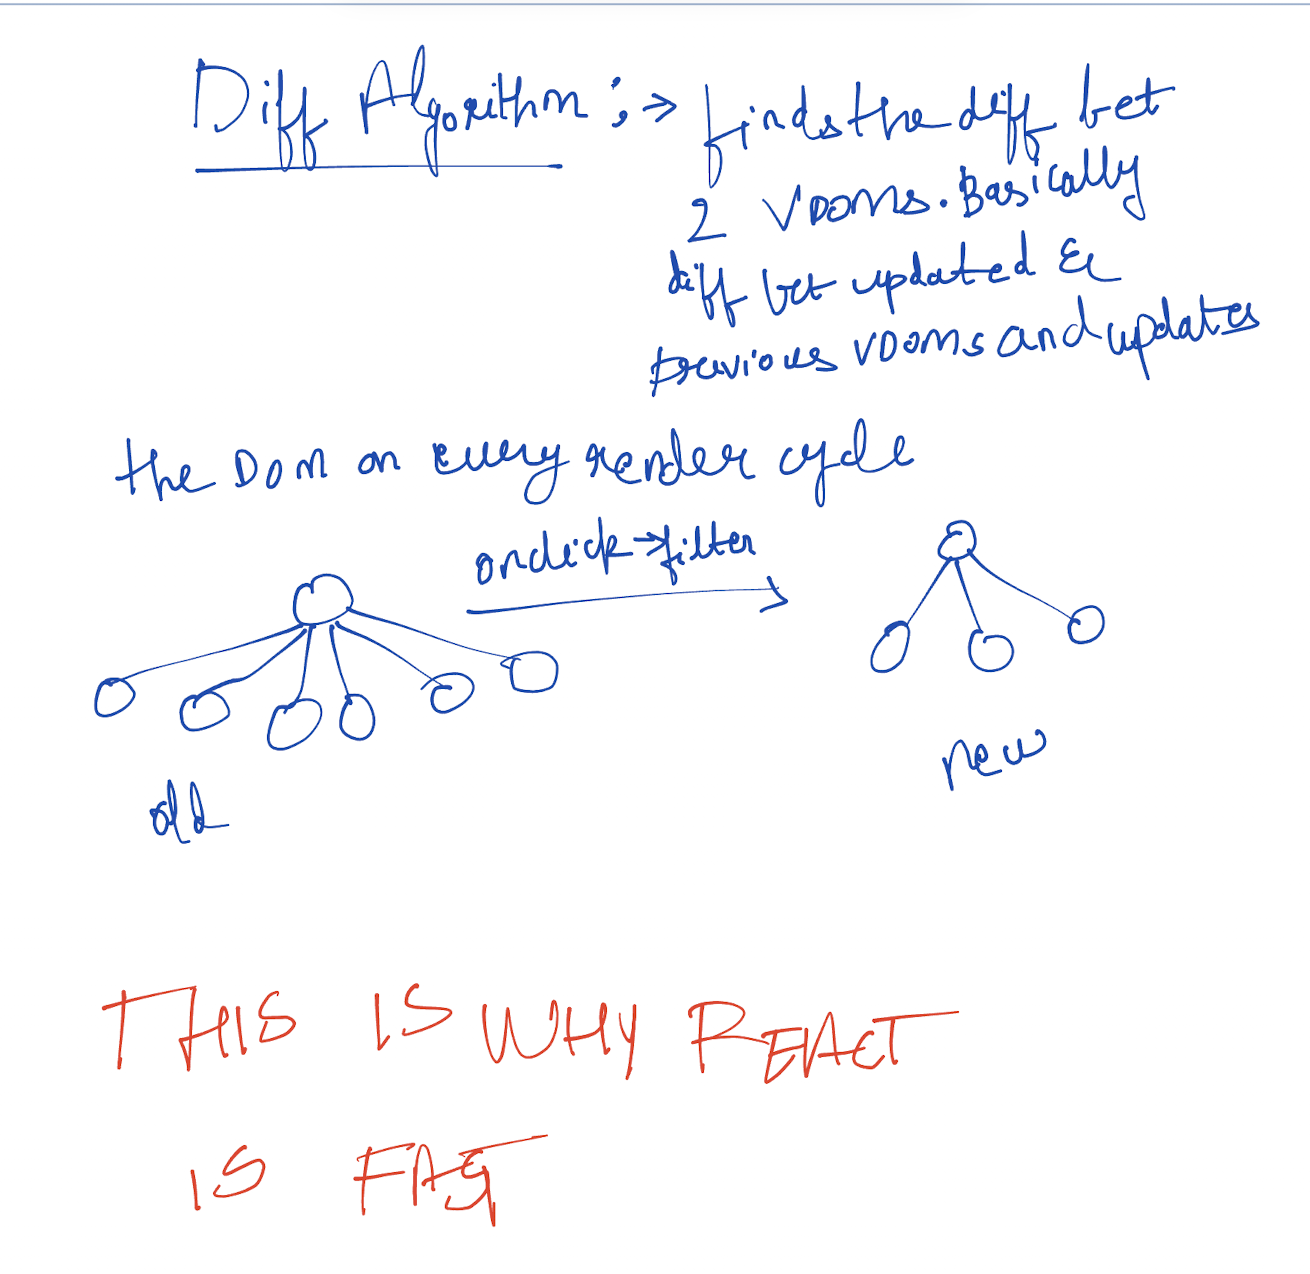 Diff Algorithm :→ finds the diff bet
2 VDOMs. Basically
diff bet updated &
previous VDOMs and updates
the DOM on every render cycle
onclick→filter
old
new
THIS IS WHY REACT
IS FAST